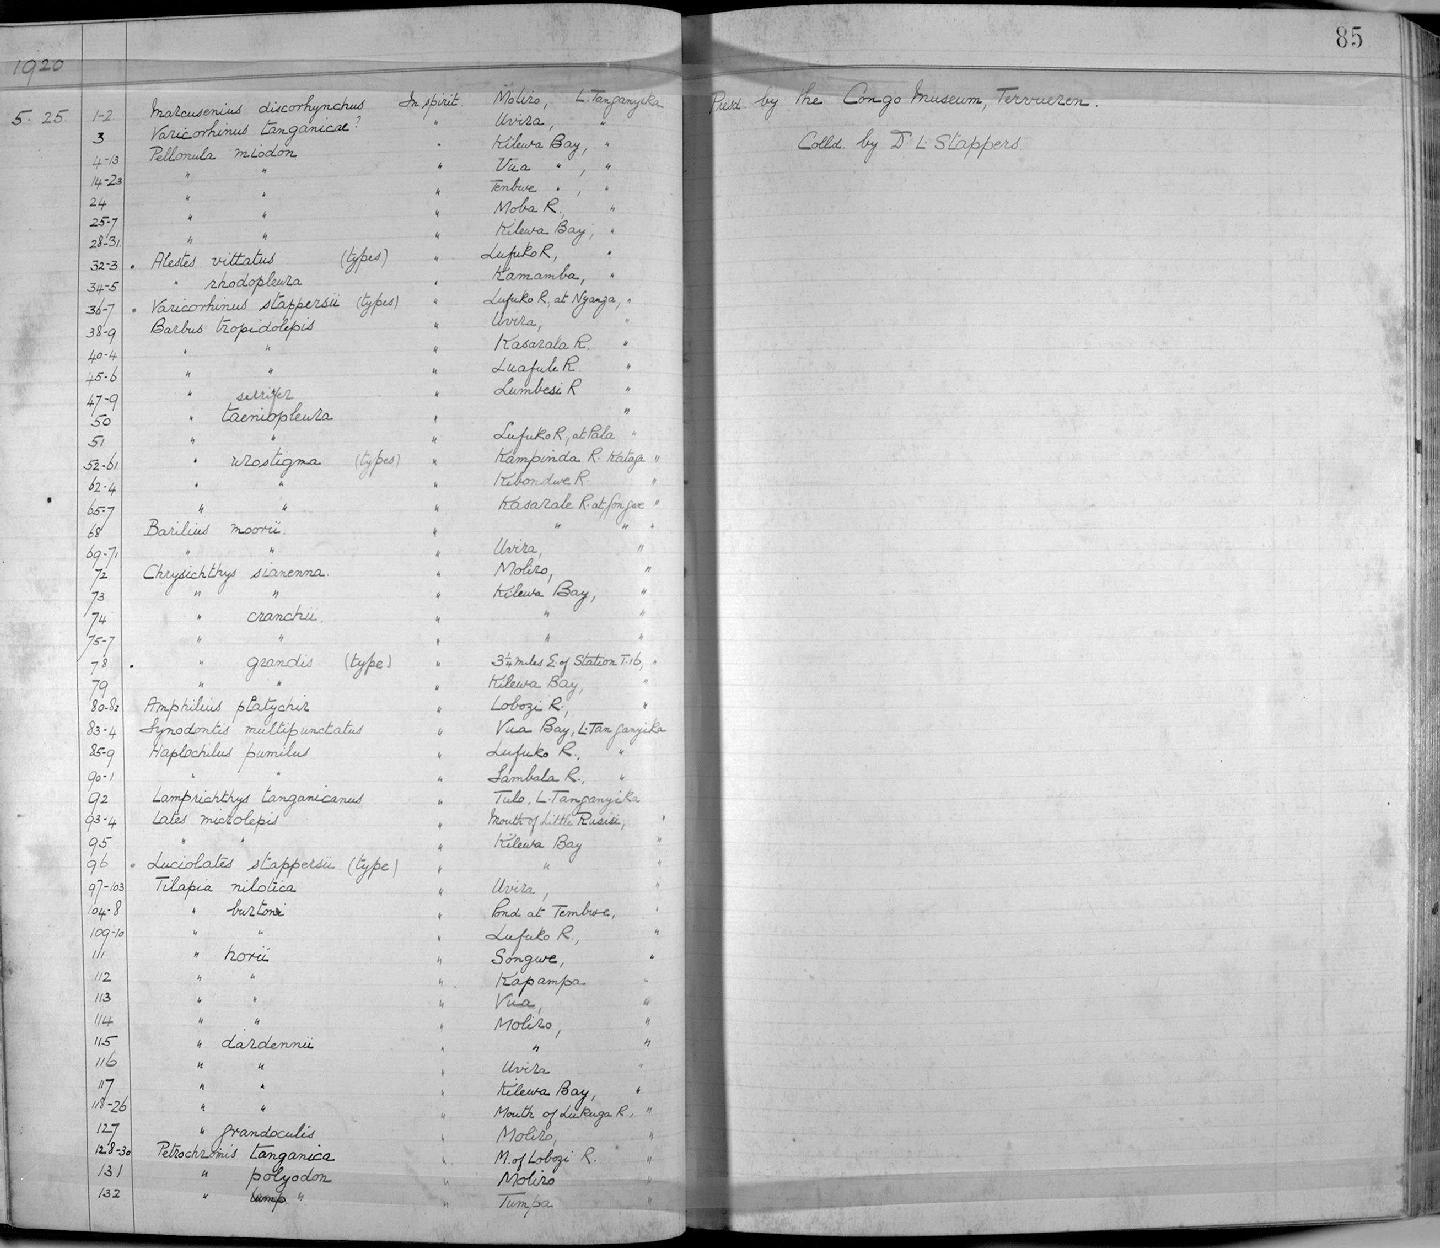 85
1920
5. 25 1-2 Marcusenius discorhynchus In spirit. Moliro, L. Tanganyika Presd. by the Congo Museum, Tervueren.
3 Varicorhinus tanganicae? " Uvira, "
4-13 Pellonula miodon " Kilewa Bay, " Colld. by Dr L. Stappers
14-23 " " " Vua " , "
24 " " " Tembwe " , "
25-7 " " " Moba R., "
28-31 " " " Kilewa Bay, "
32-3 . Alestes vittatus (types) " Lufuko R, "
34-5 " rhodopleura " Kamamba, "
36-7 . Varicorhinus stappersii (types) " Lufuko R, at Nyanza, "
38-9 Barbus tropidolepis " Uvira, "
40-4 " " " Kasarala R. "
45-6 " " " R. "
47-9 " serrifer " Lumbesi R "
50 " taeniopleura " "
51 " " " Lufuko R, at Pala "
52-61 " urostigma (types) " Kampinda R. "
62-4 " " " R. "
65-7 " " " Kasarale R. at "
68 Barilius moorii. " " " "
69-71 " " " Uvira, "
72 Chrysichthys sianenna. " Moliro, "
73 " " " Kilewa Bay, "
74 " cranchii. " " "
75-7 " " " " "
78 . " grandis (type) " 3¼ miles E. of Station T.16, "
79 " " " Kilewa Bay, "
80-82 Amphilius platychir " Lobozi R., "
83-4 Synodontis multipunctatus " Vua Bay, L. Tanganyika
85-9 Haplochilus pumilus " Lufuko R., "
90-1 " " " Sambala R., "
92 Lamprichthys tanganicanus " Tulo, L. Tanganyika
93-4 Lates microlepis " Mouth of Little Rusisi, "
95 " " " Kilewa Bay "
96 . Luciolates stappersii (type) " " "
97-103 Tilapia nilotica " Uvira, "
04-8 " burtoni " Pond at Tembwe, "
109-10 " " " Lufuko R., "
111 " horii " Songwe, "
112 " " " Kapampa "
113 " " " Vua, "
114 " " " Moliro, "
115 " dardennii " " "
116 " " " Uvira "
117 " " " Kilewa Bay, "
118-26 " " " Mouth of Lukuga R. "
127 " grandoculis " Moliro, "
128-30 Petrochromis tanganicae " M. of Lobozi R. "
131 " polyodon " Moliro "
132 " " " Tumpa "